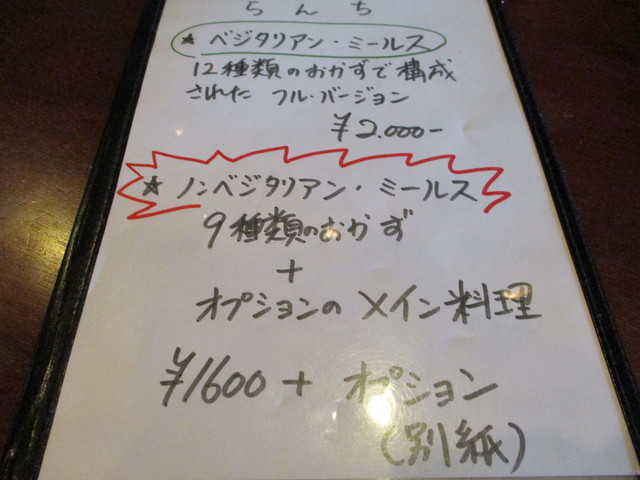 らんち
★ ベジタリアン・ミールス
12種類のおかずで構成
された フル・バージョン
¥2.000-
★ ノンベジタリアン・ミールス
9種類のおかず
+
オプションの メイン料理
¥1600 + オプション
(別紙)